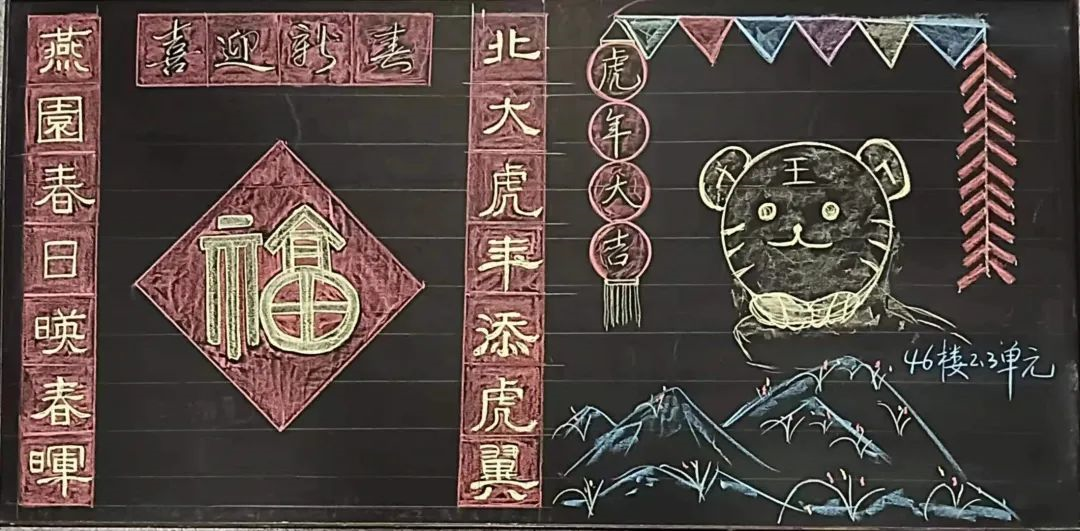 喜迎新春
北大虎年添虎翼
燕園春日暎春暉
福
虎年大吉
王
46楼2.3单元